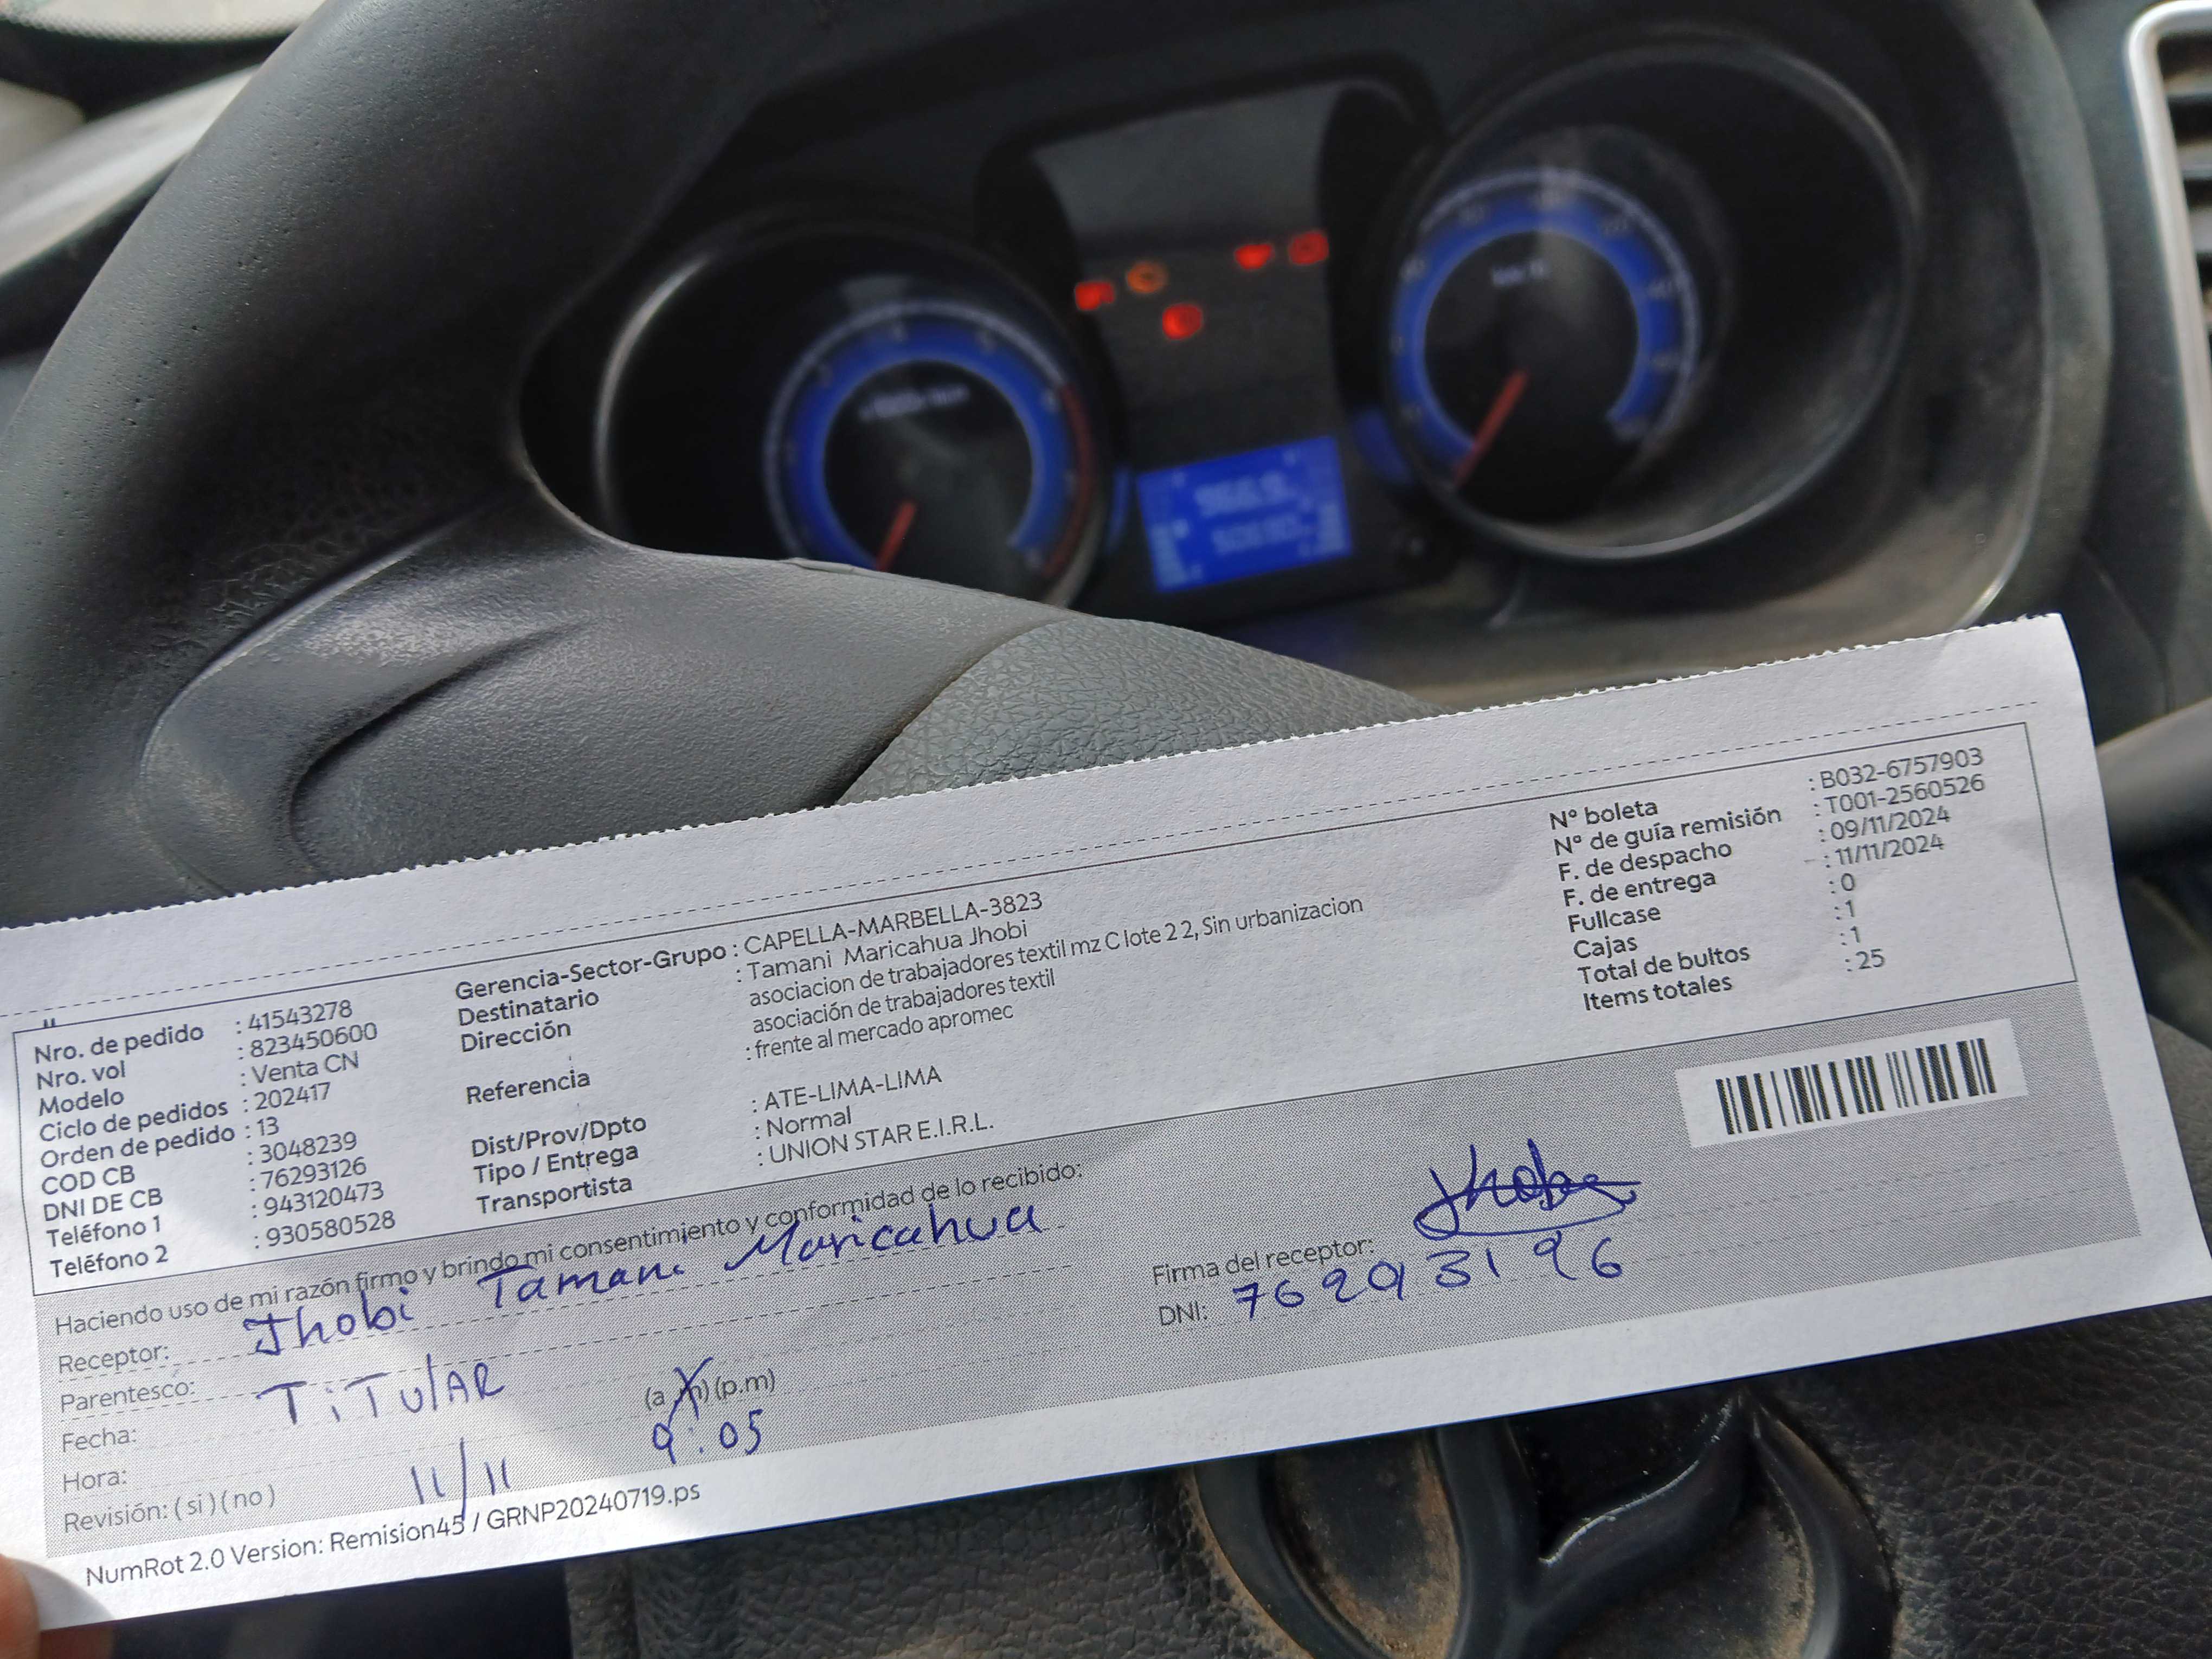 Nro. de pedido : 41543278
Nro. vol : 823450600
Modelo : Venta CN
Ciclo de pedidos : 202417
Orden de pedido : 13
COD CB : 3048239
DNI DE CB : 76293126
Teléfono 1 : 943120473
Teléfono 2 : 930580528
Gerencia-Sector-Grupo : CAPELLA-MARBELLA-3823
Destinatario : Tamani Maricahua Jhobi
Dirección asociacion de trabajadores textil mz C lote 2 2, Sin urbanizacion
asociación de trabajadores textil
Referencia : frente al mercado apromec
Dist/Prov/Dpto : ATE-LIMA-LIMA
Tipo / Entrega : Normal
Transportista : UNION STAR E.I.R.L.
N° boleta : B032-6757903
N° de guía remisión : T001-2560526
F. de despacho : 09/11/2024
F. de entrega : 11/11/2024
Fullcase : 0
Cajas : 1
Total de bultos : 1
Items totales : 25
Haciendo uso de mi razón firmo y brindo mi consentimiento y conformidad de lo recibido:
Receptor: Jhobi Tamani Maricahua
Parentesco: TiTulAR
Fecha:
Hora: (a.m) (p.m)
Revisión: (si) (no) 11/11 9:05
Firma del receptor: Jhobi
DNI: 76293196
NumRot 2.0 Version: Remision45 / GRNP20240719.ps